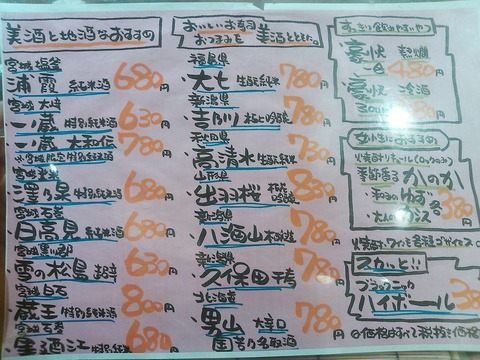 美酒と地酒なおすすめ
宮城 塩釜
浦霞 純米酒 680円
宮城 大崎
一ノ蔵 特別純米酒 630円
一ノ蔵 大和伝 780円
※宮城限定 特別純米酒
澤乃泉 特別純米酒 820円
宮城 石巻
日高見 純米酒 680円
宮城 黒川郡
雪の松島 630円
宮城 白石
蔵王 特別純米酒 800円
宮城 石巻
墨廼江 特別純米酒 880円
おいしいお寿司
おつまみを 美酒とともに。
福島県
大七 生酛純米 780円
新潟県
吉乃川 780円
秋田県
高清水 780円
山形県
出羽桜 880円
新潟県
八海山 本醸造 780円
新潟県
久保田 千寿 880円
北海道
男山 大辛口 780円
国芳乃名取酒
すっきり飲みやすいやつ
豪快 熱燗
一合 480円
豪快 冷酒
300ml 円
女性におすすめ
焼酎リキュール(ロックのみ)
季節香る かのか
和みのゆず 各
大人のカシス 380円
スカッと!!
ブラックニッカ
ハイボール
◎価格はすべて税抜き価格